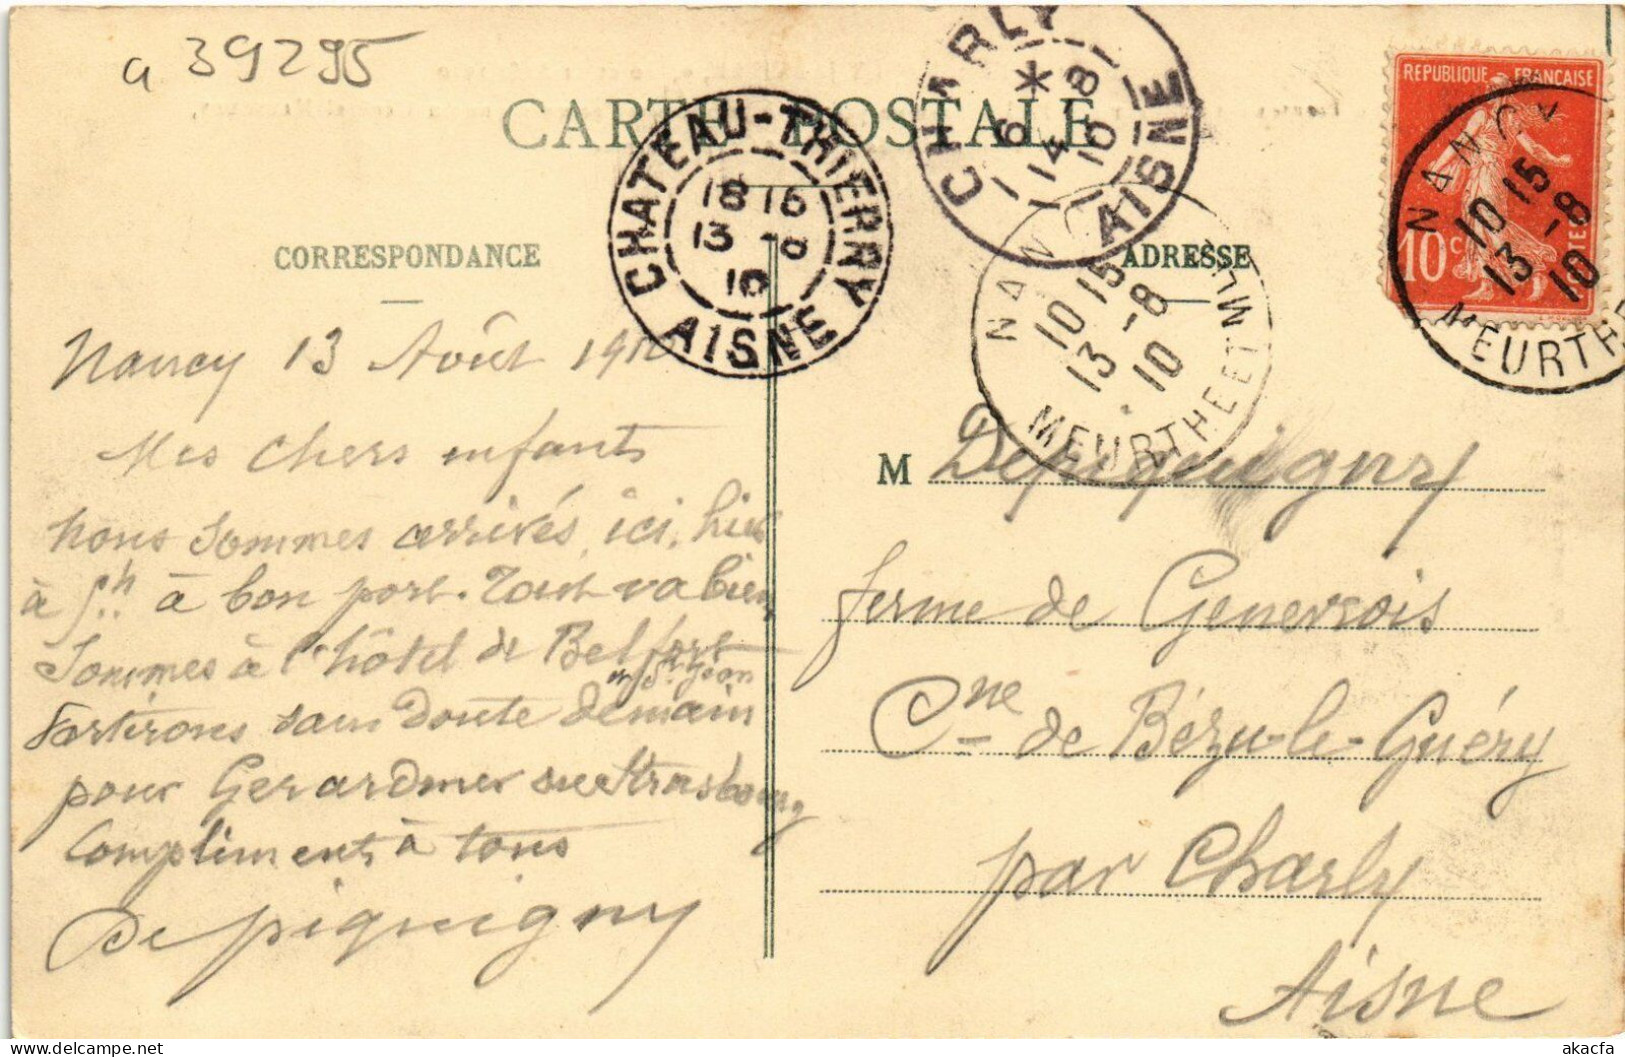 a 39295
CARTE POSTALE
CORRESPONDANCE
ADRESSE
CHATEAU-THIERRY
18 15
13 -8
10
AISNE
CHARLY
*
6
14 -8
10
AISNE
NANCY
10 15
13 -8
10
MEURTHE ET MLE
REPUBLIQUE FRANCAISE
10c
POSTES
NANCY
10 15
13 -8
10
MEURTHE
Nancy 13 Août 1910
Mes chers enfants
nous sommes arrivés, ici, hier
à 5h à bon port. Tout va bien
Sommes à l'hôtel de Belfort
St Jean
Partirons sans doute demain
pour Gerardmer Strasbourg
Compliments à tous
Depiquigny
M Depiquigny
ferme de Genevrois
Cne de Bézu-le-Guéry
par Charly
Aisne
akacfa